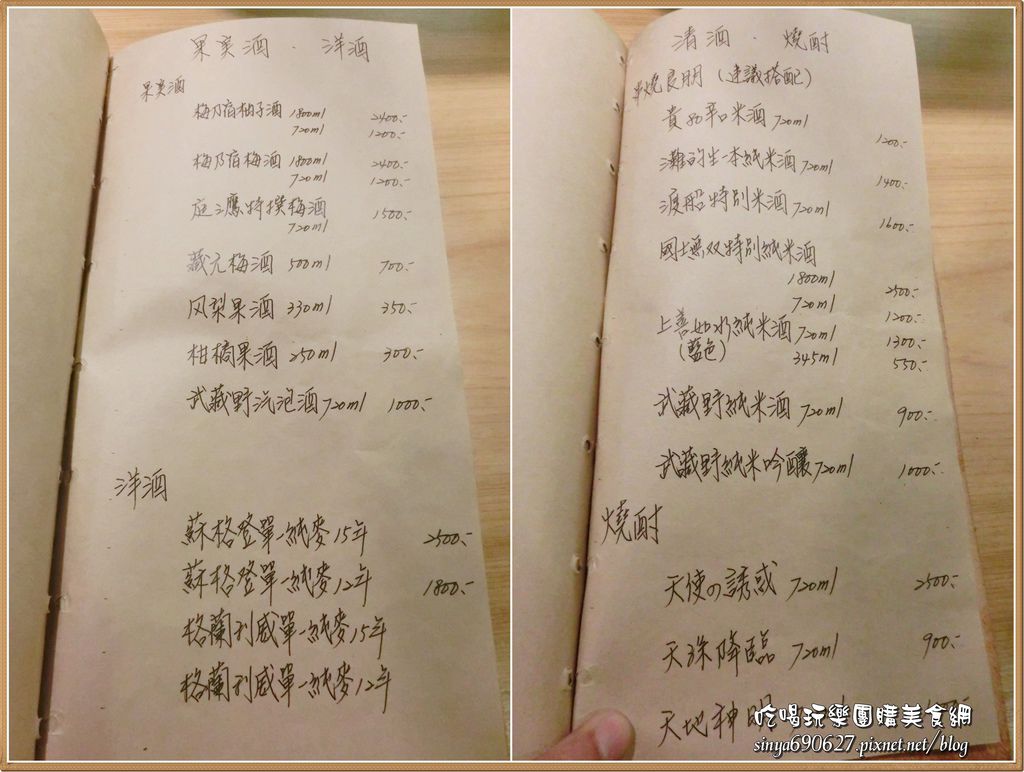 果実酒 . 洋酒
果実酒
梅乃宿柚子酒 1800ml 2400.-
720ml 1200.-
梅乃宿梅酒 1800ml 2400.-
720ml 1200.-
庭之鷹特撰梅酒 1500.-
720ml
蔵元梅酒 500ml 700.-
风梨果酒 330ml 350.-
柑橘果酒 250ml 300.-
武蔵野汽泡酒 720ml 1000.-
洋酒
蘇格登單一純麥15年 2500.-
蘇格登單一純麥12年 1800.-
格蘭利威單一純麥15年
格蘭利威單一純麥12年
清酒 . 燒酎
串燒良朋 (建議搭配)
貴 辛口米酒 720ml 1200.-
灘的生一本純米酒 720ml 1400.-
渡船特別米酒 720ml 1600.-
國士無双特別純米酒
1800ml 2500.-
720ml 1200.-
上善如水純米酒 720ml 1300.-
(藍色) 345ml 550.-
武蔵野純米酒 720ml 900.-
武蔵野純米吟釀 720ml 1000.-
燒酎
天使の誘惑 720ml 2500.-
天孫降臨 720ml 900.-
天地神
吃喝玩樂團購美食網
sinya690627.pixnet.net/blog